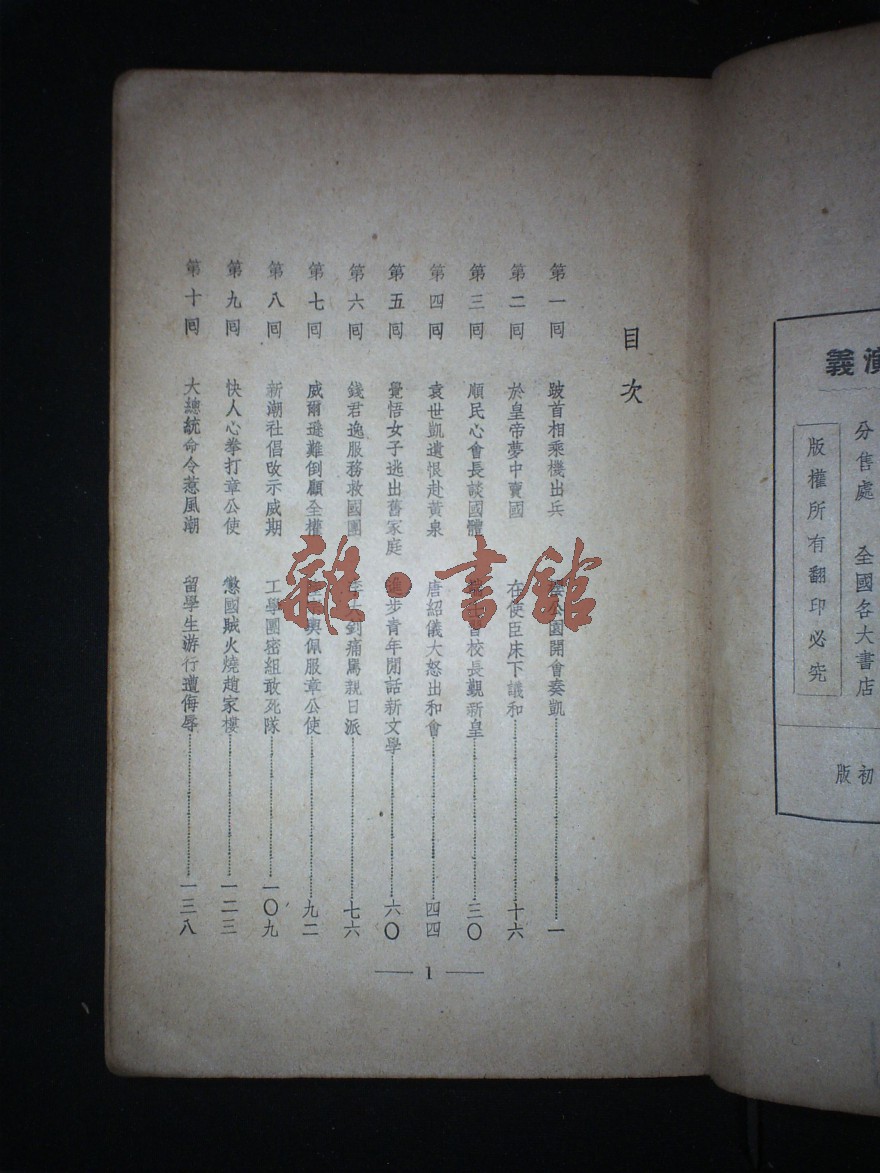 演義
分售處 全國各大書店
版權所有翻印必究
初版
目次
第一囘 跛首相乘機出兵 公園開會奏凱 一
第二囘 於皇帝夢中賣國 在使臣床下議和 十六
第三囘 順民心會長談國體 校長覲新皇 三〇
第四囘 袁世凱遺恨赴黃泉 唐紹儀大怒出和會 四四
第五囘 覺悟女子逃出舊家庭 進步青年閒話新文學 六〇
第六囘 錢君逸服務救國團 釗痛罵親日派 七六
第七囘 威爾遜難倒顧全權 輿佩服章公使 九二
第八囘 新潮社倡改示威期 工學團密組敢死隊 一〇九
第九囘 快人心拳打章公使 懲國賊火燒趙家樓 一二三
第十囘 大總統命令惹風潮 留學生游行遭侮辱 一三八
1
雜·書館